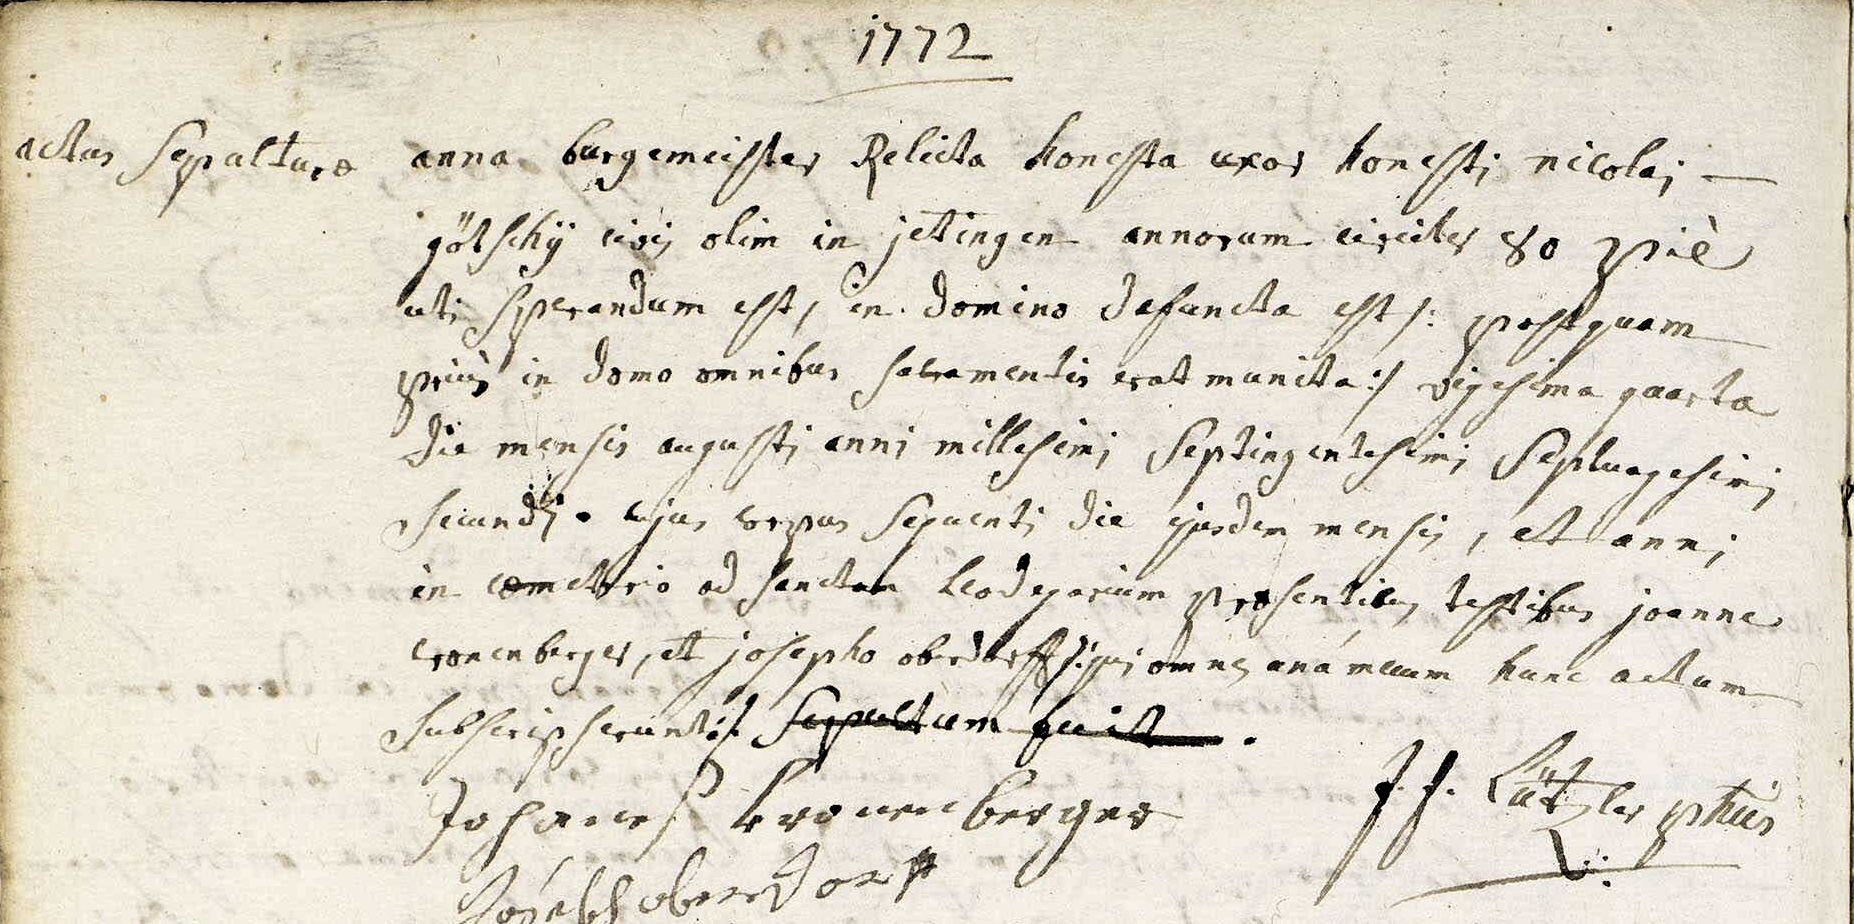 1772
actus Sepulturæ
anna burgemeister Relicta honesta uxor honesti nicolai —
götschÿ civis olim in jetingen annorum circiter 80 piè
uti sperandum est, in domino defuncta est /: postquam
prius in domo omnibus sacramentis erat munita :/ vigesima quarta
die mensis augusti anni millesimi septingentesimi septuagesimi
secundi. cujus corpus sequenti die ejusdem mensis, et anni
in cœmeterio ad sanctum Leodegarium præsentibus testibus joanne
cronenberger, et josepho oberdorff /: qui omnes una mecum hunc actum
subscripserunt :/ sepultum fuit.
Johannes kronenberger
J. J. Lützler
Joseph oberdorf